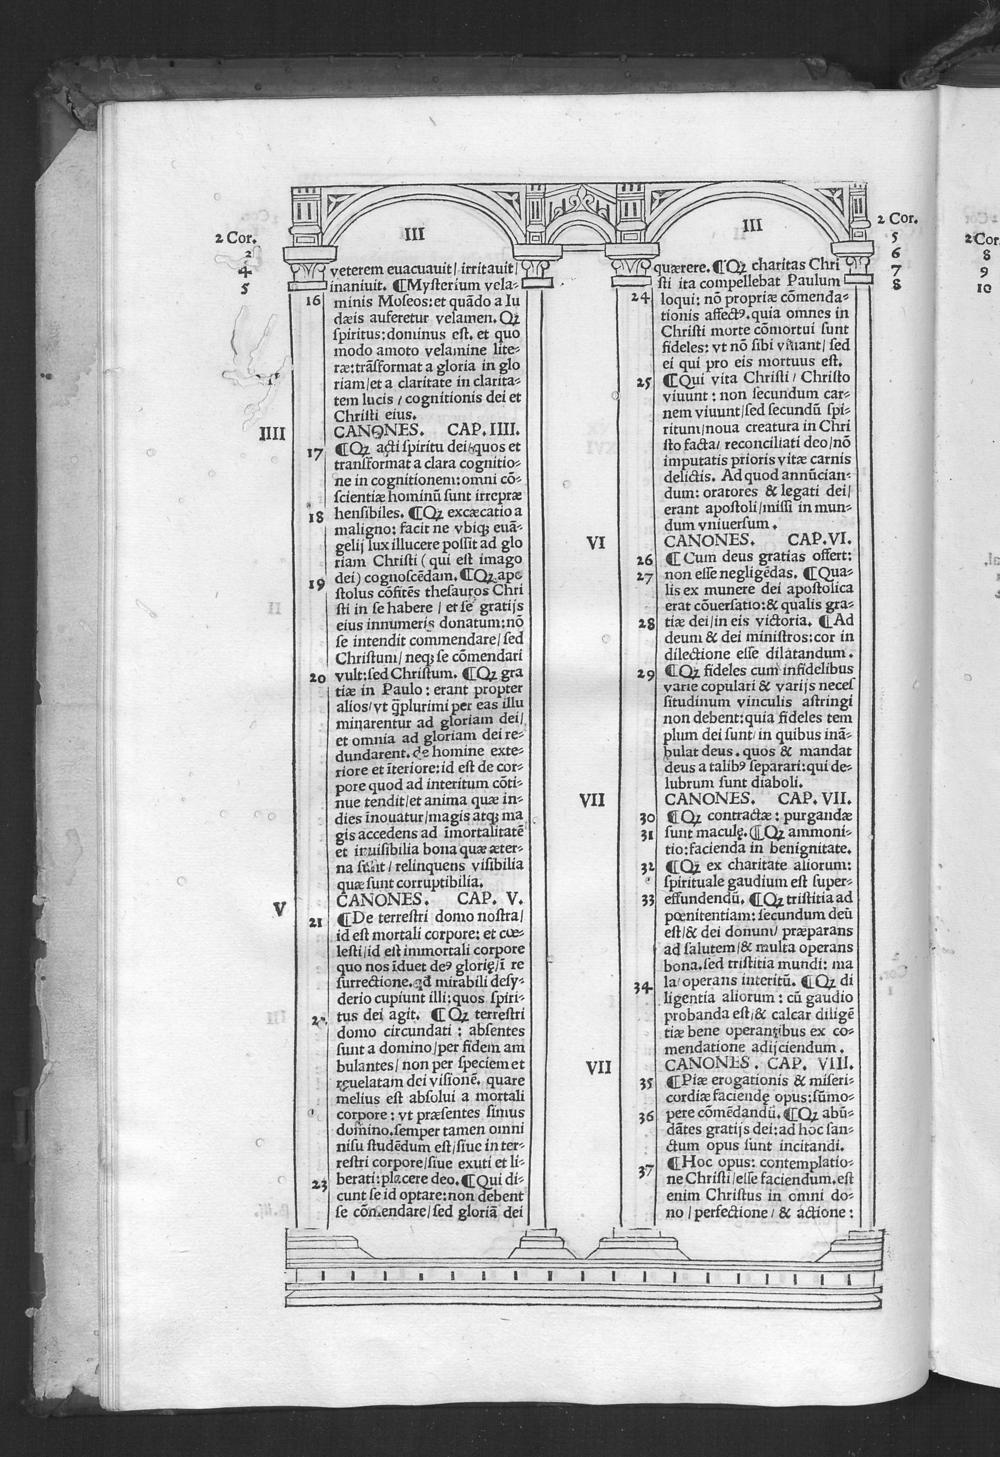 III
2 Cor.
2
4
5
veterem euacuauit/ irritauit/
inaniuit. ¶Mysterium vela⸗
16 minis Moseos: et quādo a Iu
dæis auferetur velamen. Qꝫ
spiritus: dominus est. et quo
modo amoto velamine lite⸗
ræ: trāsformat a gloria in glo
riam/et a claritate in clarita⸗
tem lucis / cognitionis dei et
Christi eius.
IIII
CANONES. CAP. IIII.
17 ¶Qꝫ acti spiritu dei quos et
transformat a clara cognitio⸗
ne in cognitionem: omni cō⸗
scientiæ hominū sunt irrepræ
18 hensibiles. ¶Qꝫ excæcatio a
maligno: facit ne vbiqꝫ euā⸗
gelij lux illucere possit ad glo
riam Christi ( qui est imago
19 dei) cognoscēdam. ¶Qꝫ apo
stolus cōfitēs thesauros Chri
sti in se habere / et se gratijs
eius innumeris donatum: nō
se intendit commendare/ sed
Christum/ neqꝫ se cōmendari
20 vult: sed Christum. ¶Qꝫ gra
tiæ in Paulo : erant propter
alios/ vt q̄plurimi per eas illu
minarentur ad gloriam dei/
et omnia ad gloriam dei re⸗
dundarent. de homine exte⸗
riore et īteriore: id est de cor⸗
pore quod ad interitum cōti⸗
nue tendit/et anima quæ in⸗
dies īnouatur/magis atqꝫ ma
gis accedens ad īmortalitatē
et inuisibilia bona quæ æter⸗
na sunt / relinquens visibilia
quæ sunt corruptibilia.
V
CANONES. CAP. V.
21 ¶De terrestri domo nostra/
id est mortali corpore: et cœ⸗
lesti/ id est immortali corpore
quo nos īduet deꝰ glorię/ī re
surrectione. qd mirabili desy⸗
derio cupiunt illi: quos spiri⸗
tus dei agit. ¶Qꝫ terrestri
domo circundati : absentes
sunt a domino/per fidem am
bulantes/ non per speciem et
reuelatam dei visionē. quare
melius est absolui a mortali
corpore : vt præsentes simus
domino. semper tamen omni
nisu studēdum est/siue in ter⸗
restri corpore/siue exuti et li⸗
berati: placere deo. ¶Qui di⸗
23 cunt se id optare: non debent
se cōmendare/ sed gloriā dei
III
2 Cor.
5
6
7
8
quærere. ¶Qꝫ charitas Chri
sti ita compellebat Paulum
24 loqui: nō propriæ cōmenda⸗
tionis affectꝰ. quia omnes in
Christi morte cōmortui sunt
fideles: vt nō sibi viuant/ sed
ei qui pro eis mortuus est.
25 ¶Qui vita Christi / Christo
viuunt : non secundum car⸗
nem viuunt/sed secundū spi⸗
ritum/noua creatura in Chri
sto facta/ reconciliati deo/ nō
imputatis prioris vitæ carnis
delictis. Ad quod annūcian⸗
dum: oratores & legati dei/
erant apostoli/missi in mun⸗
dum vniuersum .
VI
CANONES. CAP. VI.
26 ¶ Cum deus gratias offert:
27 non esse negligēdas. ¶Qua⸗
lis ex munere dei apostolica
erat cōuersatio: & qualis gra⸗
28 tiæ dei/ in eis victoria. ¶Ad
deum & dei ministros: cor in
dilectione esse dilatandum .
29 ¶Qꝫ fideles cum infidelibus
varie copulari & varijs neces
situdinum vinculis astringi
non debent: quia fideles tem
plum dei sunt/ in quibus inā⸗
bulat deus. quos & mandat
deus a talibꝰ separari: qui de⸗
lubrum sunt diaboli.
VII
CANONES. CAP. VII.
30 ¶Qꝫ contractæ : purgandæ
31 sunt maculę. ¶Qꝫ ammoni⸗
tio: facienda in benignitate.
32 ¶Qꝫ ex charitate aliorum:
spirituale gaudium est super⸗
33 effundendū. ¶Qꝫ tristitia ad
pœnitentiam: secundum deū
est/ & dei donum/ præparans
ad salutem/& multa operans
bona. sed tristitia mundi: ma
34 la/ operans interitū. ¶Qꝫ di
ligentia aliorum : cū gaudio
probanda est/ & calcar diligē
tiæ bene operantibus ex co⸗
mendatione adijciendum .
VII
CANONES . CAP. VIII.
35 ¶Piæ erogationis & miseri⸗
cordiæ faciendę opus: sūmo⸗
36 pere cōmēdandū. ¶Qꝫ abū⸗
dātes gratijs dei: ad hoc san⸗
ctum opus sunt incitandi.
37 ¶Hoc opus: contemplatio⸗
ne Christi/ esse faciendum. est
enim Christus in omni do⸗
no / perfectione / & actione :
2 Cor.
8
9
10